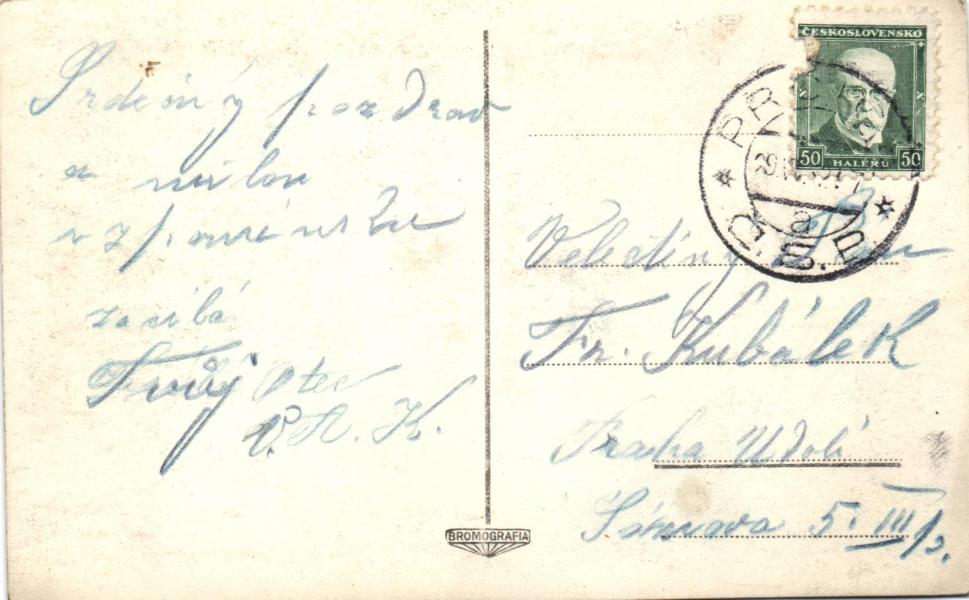 Srdečný pozdrav
a milou
vzpomínku
zasílá
Tvůj otec
A. K.
BROMOGRAFIA
ČESKOSLOVENSKO
50 HALÉŘŮ 50
PRAHA
Veletěný Pan
Fr. Kubálek
Praha Údolí
5. III/2.